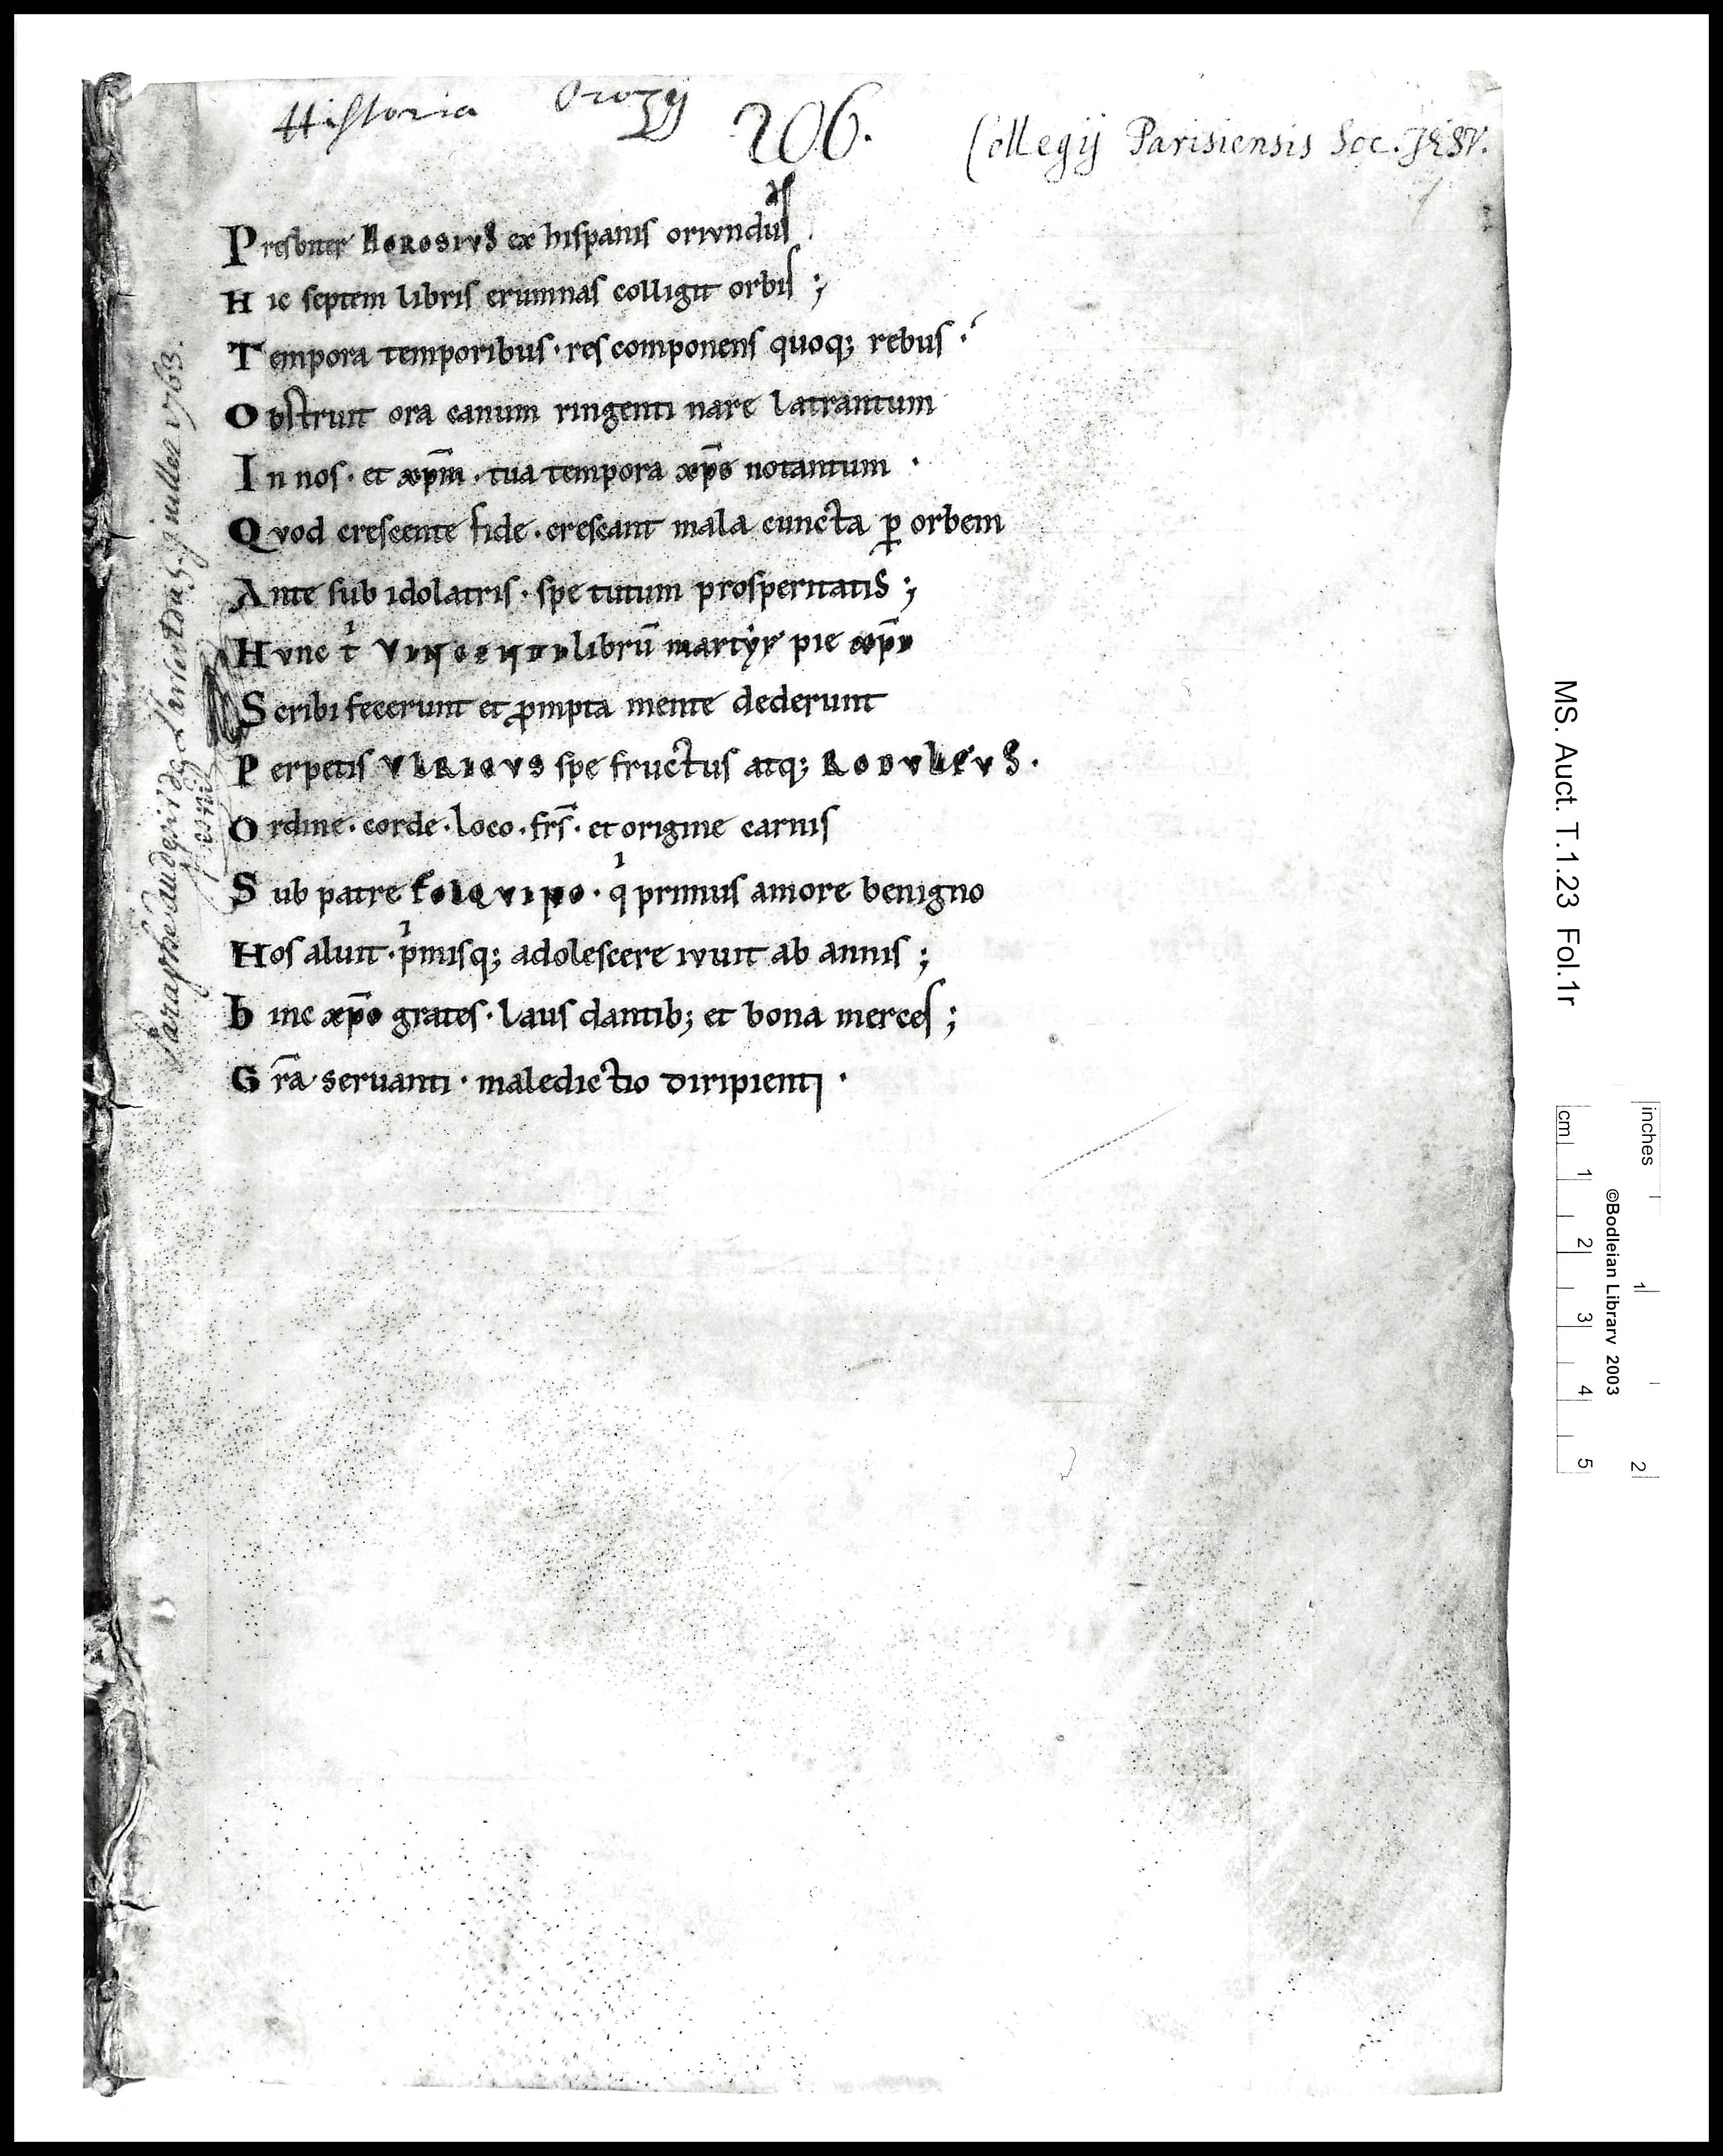 Historia Orozij
206.
Collegij Parisiensis Soc. JESV.
Presbiter HOROSIVS ex hispanis orivndus
Hic septem libris erumnas colligit orbis ;
Tempora temporibus · res componens quoq; rebus ·
Obstruit ora canum ringenti nare latrantum
In nos · et xp̄m · tua tempora xp̄e notantum ·
Qvod crescente fide · crescant mala cuncta ꝑ orbem
Ante sub idolatris · spe tutum prosperitatis ;
Hvnc tⁱ VINCENTI librū martyr pie xp̄i
Scribi fecerunt et ꝓmpta mente dederunt
Perpetis VLRICVS spe fructus atq; RODVLFVS ·
Ordine · corde · loco · fr̄s · et origine carnis
Sub patre FOLQVINO · qⁱ primus amore benigno
Hos aluit · pⁱmisq; adolescere ivuit ab annis ;
hinc xp̄o grates · laus dantib; et bona merces ;
Gr̄a servanti · maledictio diripienti ·
Paraphé au desir de juillet 1763.
MS. Auct. T.1.23 Fol.1r
inches 1 2
cm 1 2 3 4 5
©Bodleian Library 2003